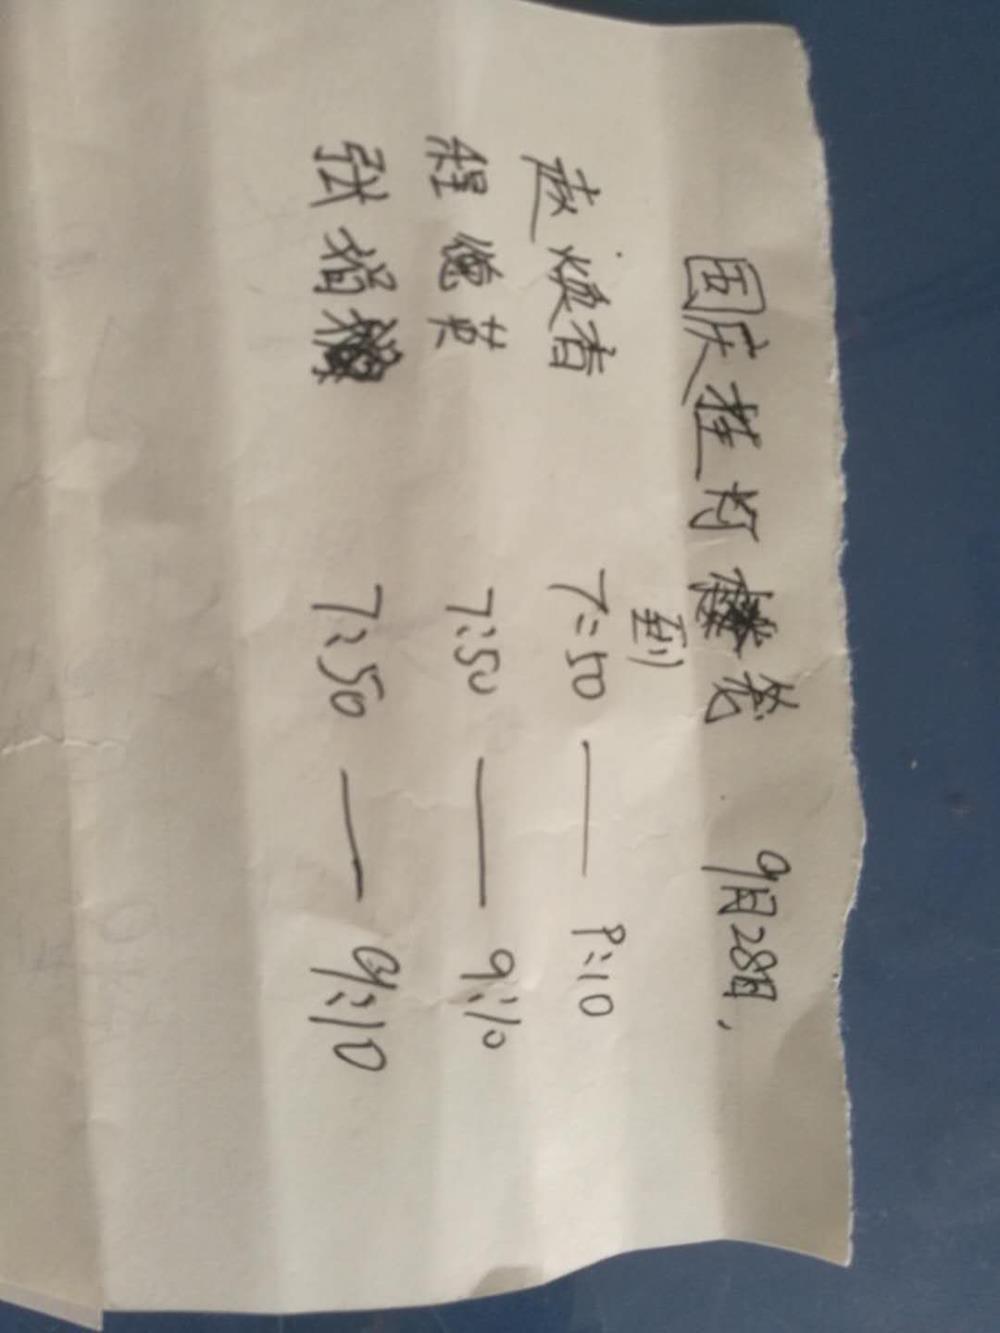 国庆挂灯笼 9月28日,
到
赵焕香 7:50 — 9:10
程德英 7:50 — 9:10
张 7:50 — 9:10